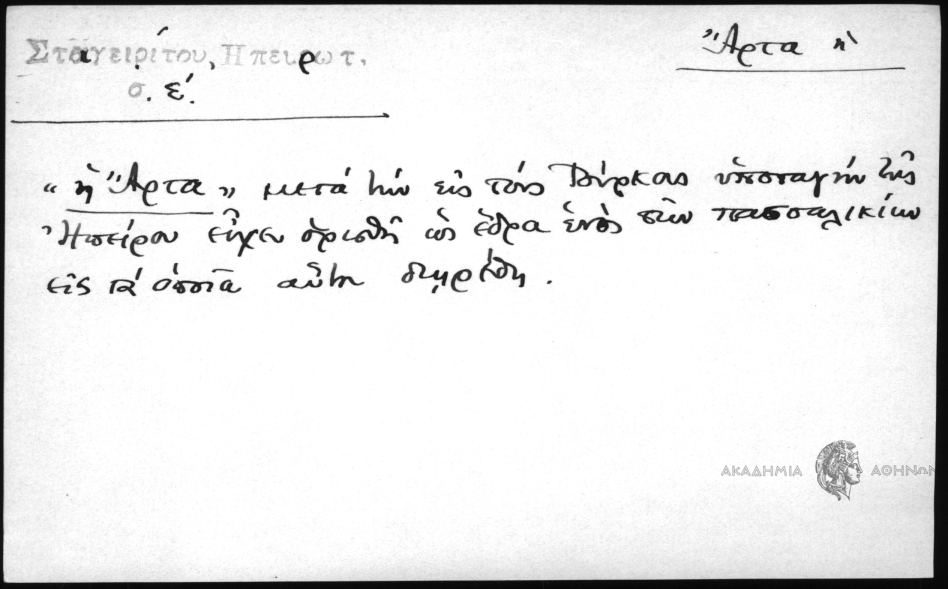 Σταγειρίτου, Ηπειρωτ.
σ. ε΄.
Ἄρτα ἡ
«ἡ Ἄρτα» μετά τήν εἰς τούς Τούρκους ὑποταγήν τῆς
Ἠπείρου εἶχεν ὁρισθῆ ὡς ἕδρα ἑνός τῶν πασσαλικίων
εἰς τά ὁποῖα αὕτη διῃρέθη.
ΑΚΑΔΗΜΙΑ ΑΘΗΝΩΝ